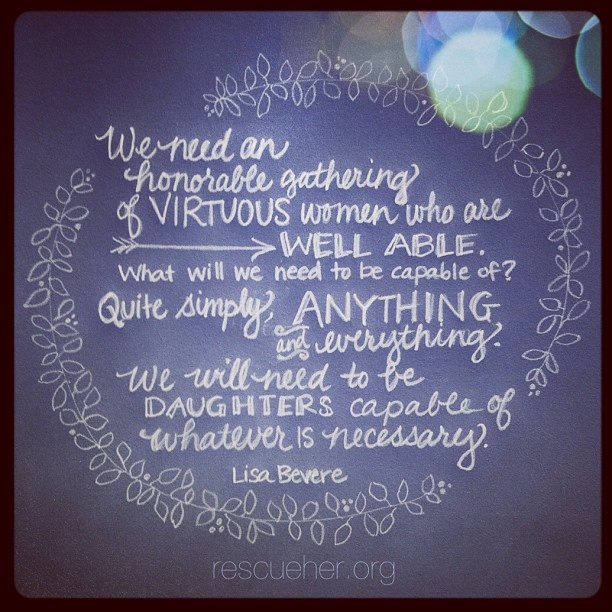 We need an
honorable gathering
of VIRTUOUS women who are
WELL ABLE.
What will we need to be capable of?
Quite simply, ANYTHING
and everything.
We will need to be
DAUGHTERS capable of
whatever IS necessary.
Lisa Bevere
rescueher.org